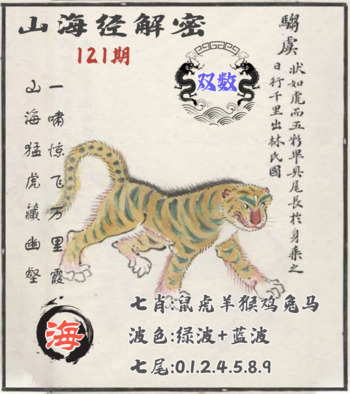 山海经解密
121期
双数
驺虞
状如虎而五彩毕具尾长於身乘之
日行千里出林氏國
一啸惊飞万里霞
山海猛虎藏幽壑
海
七肖:鼠虎羊猴鸡兔马
波色:绿波+蓝波
七尾:0.1.2.4.5.8.9